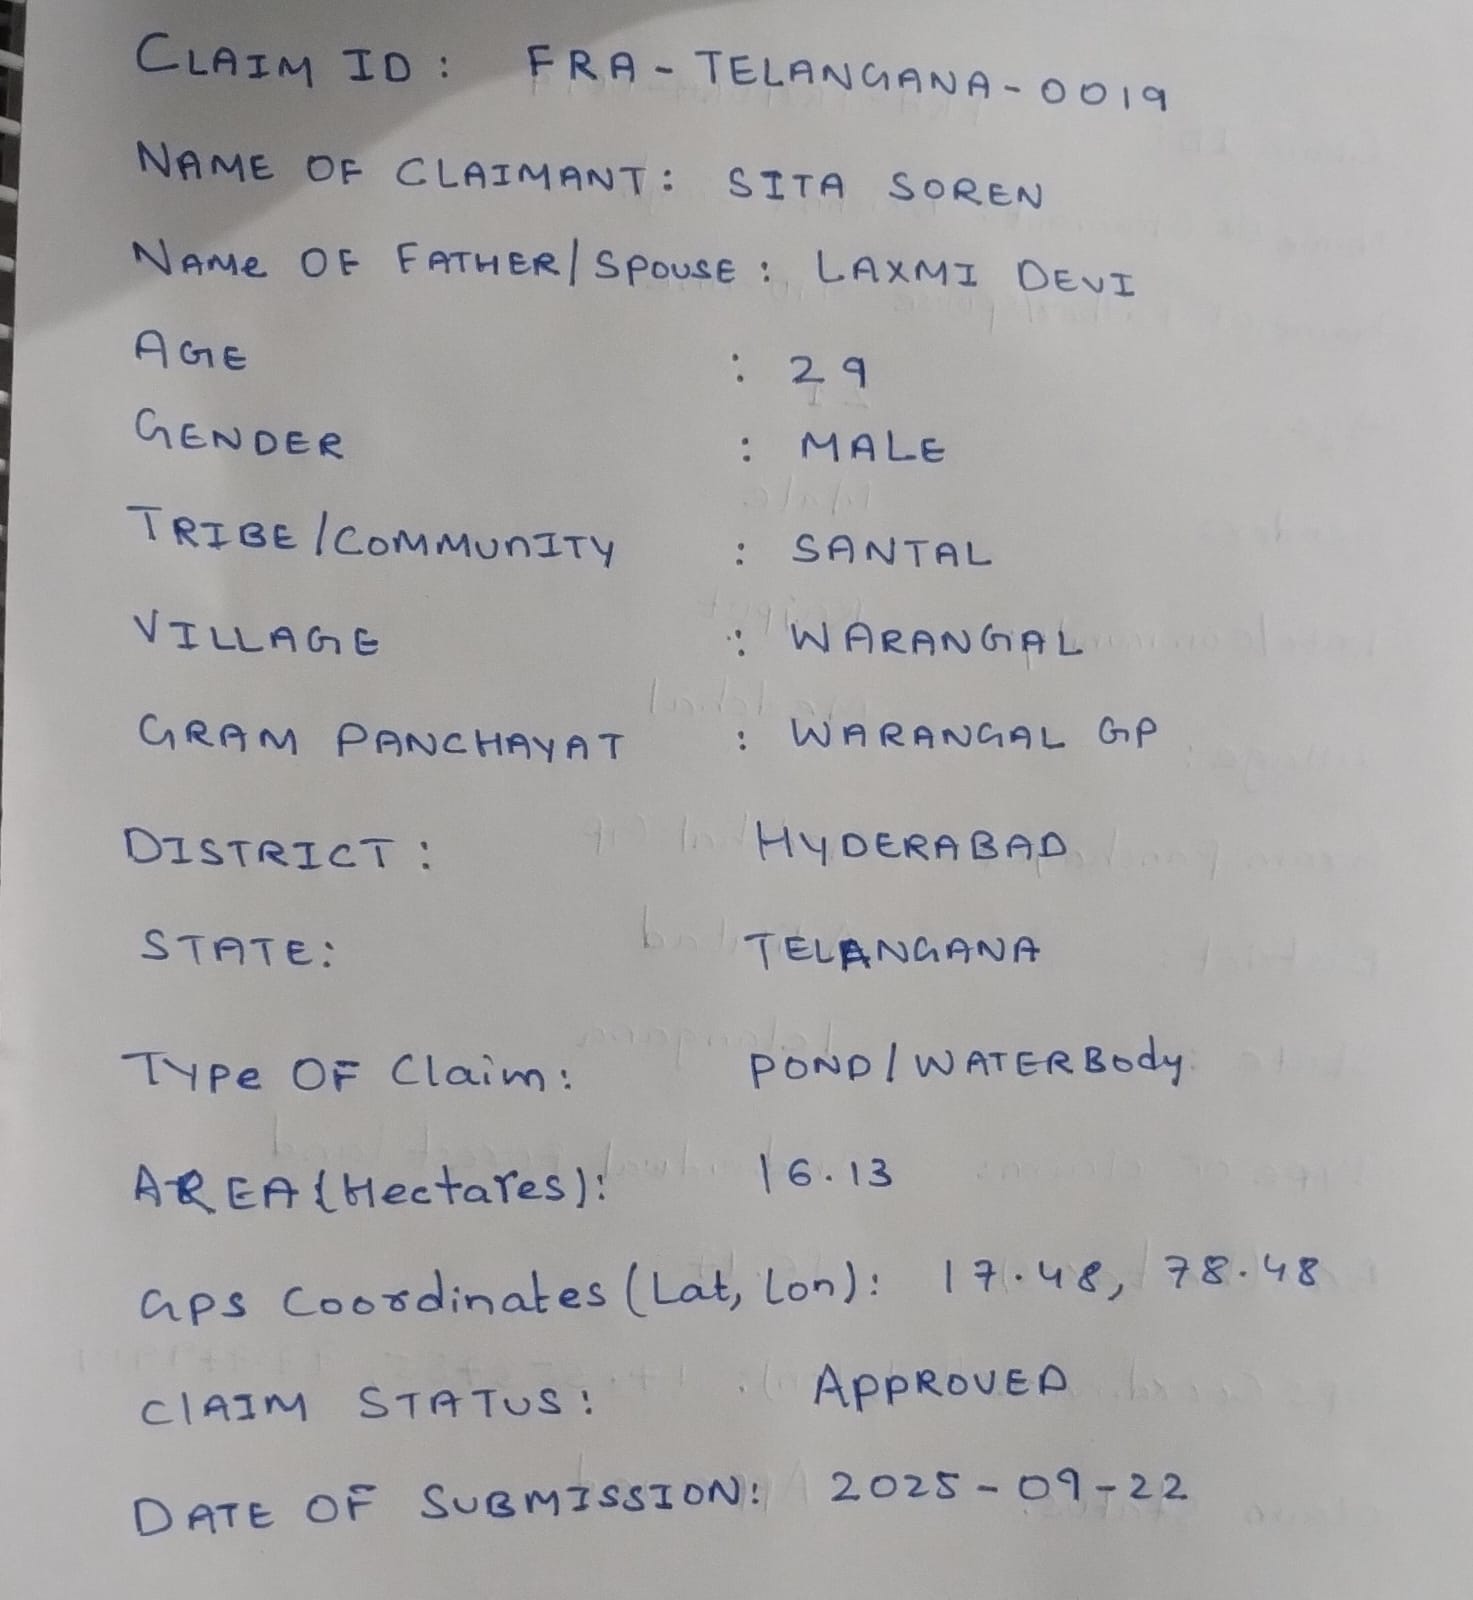 CLAIM ID: FRA-TELANGANA-0019
NAME OF CLAIMANT: SITA SOREN
NAMe OF FATHER/SPOUSE: LAXMI DEVI
AGE : 29
GENDER : MALE
TRIBE/COMMUnITY : SANTAL
VILLAGE : WARANGAL
GRAM PANCHAYAT : WARANGAL GP
DISTRICT: HYDERABAD
STATE: TELANGANA
TYPe OF Claim: POND/WATERBody
AREA(Hectares): 16.13
GPS Coordinates (Lat, Lon): 17.48, 78.48
ClAIM STATUS: APPROVED
DATE OF SUBMISSION: 2025-09-22